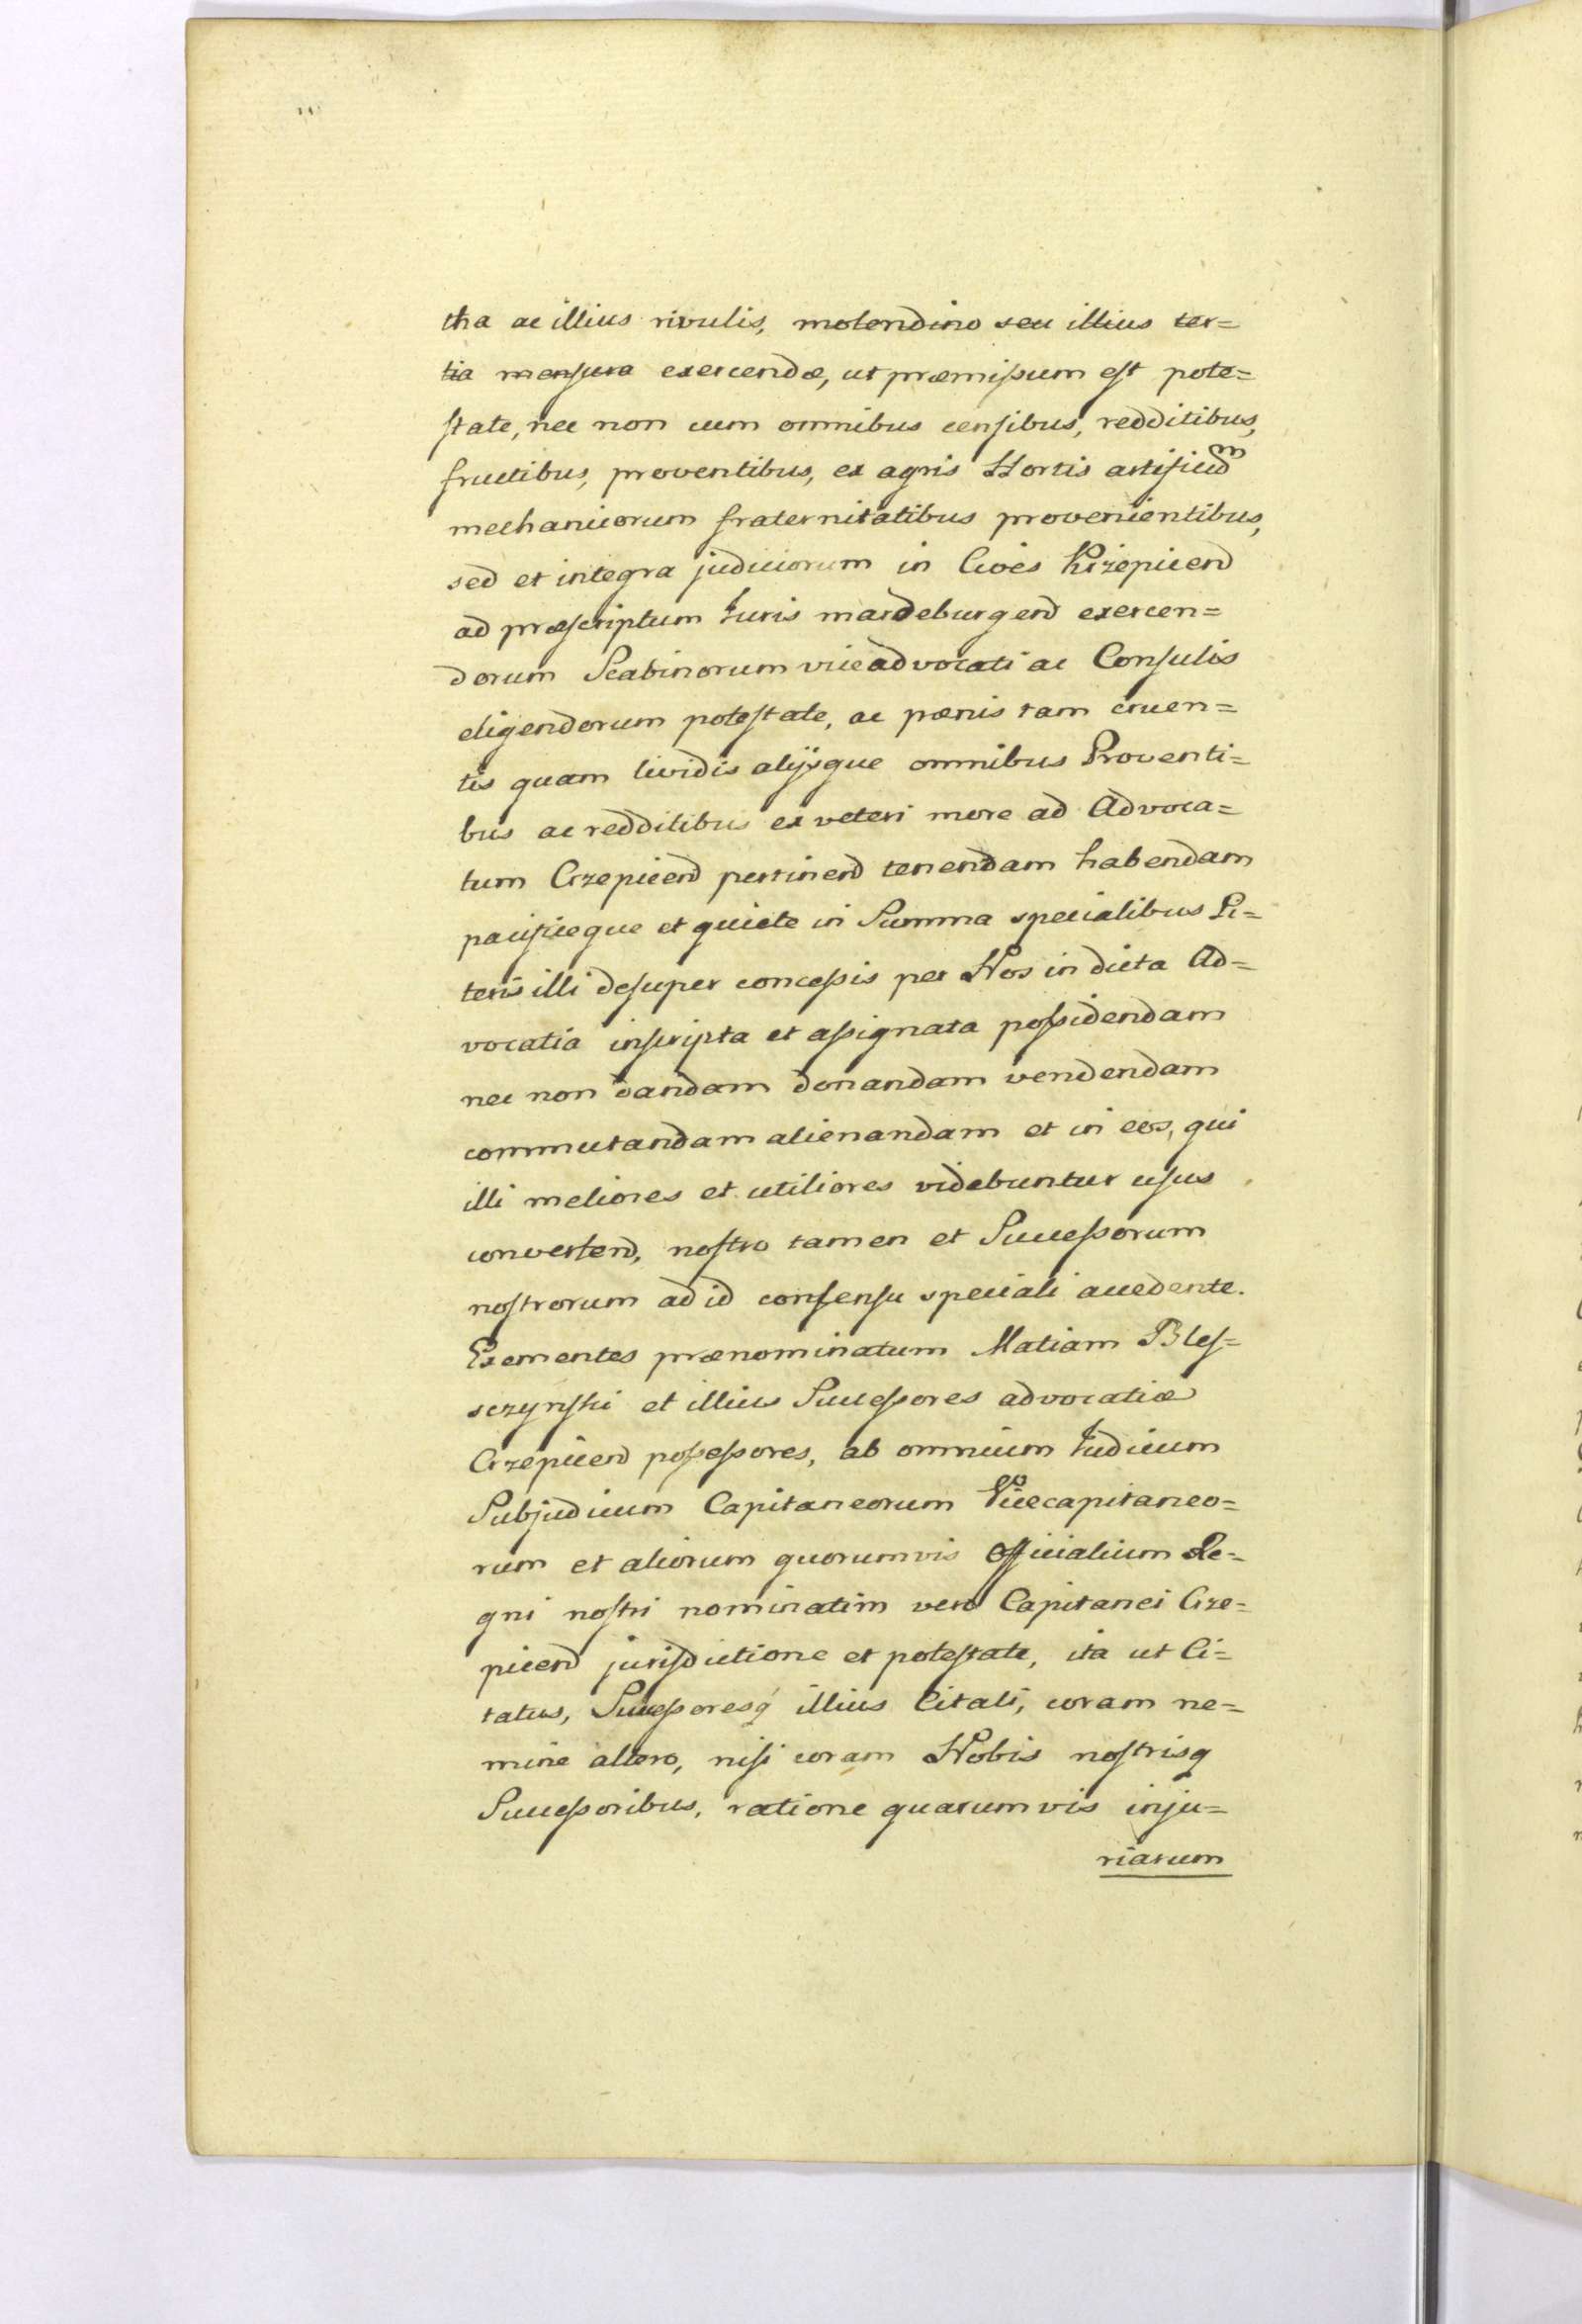 tha ac illius rivulis, molendino seu illius ter=
tia mensura exercendæ, ut præmissum est pote=
state, nec non cum omnibus censibus, redditibus,
fructibus, proventibus, ex agris Hortis artificum
mechanicorum fraternitatibus provenientibus,
sed et integra judiciorum in Cives Krzepicen̄
ad præscriptum Juris mardeburgen̄ exercen=
dorum Scabinorum viceadvocati ac Consulis
eligendorum potestate, ac pœnis tam cruen=
tis quam lividis alijsque omnibus Proventi=
bus ac redditibus ex veteri more ad Advoca=
tum Crzepicen̄ pertinen̄ tenendam habendam
pacificeque et quiete in Summa specialibus Li=
teris illi desuper concessis per Nos in dicta Ad=
vocatia inscripta et assignata possidendam
nec non dandam donandam vendendam
commutandam alienandam et in eos, qui
illi meliores et utiliores videbuntur usus
converten̄, nostro tamen et Successorum
nostrorum ad id consensu speciali accedente.
Exementes prænominatum Matiam Bles=
sczynski et illius Successores advocatiæ
Crzepicen̄ possessores, ab omnium Judicum
Subjudicum Capitaneorum Vicecapitaneo=
rum et aliorum quorumvis Officialium Re=
gni nostri nominatim vero Capitanei Crze=
picen̄ jurisdictione et potestate, ita ut Ci=
tatus, Successoresq illius Citati, coram ne=
mine altero, nisi coram Nobis nostrisq
Successoribus, ratione quarumvis inju=
riarum